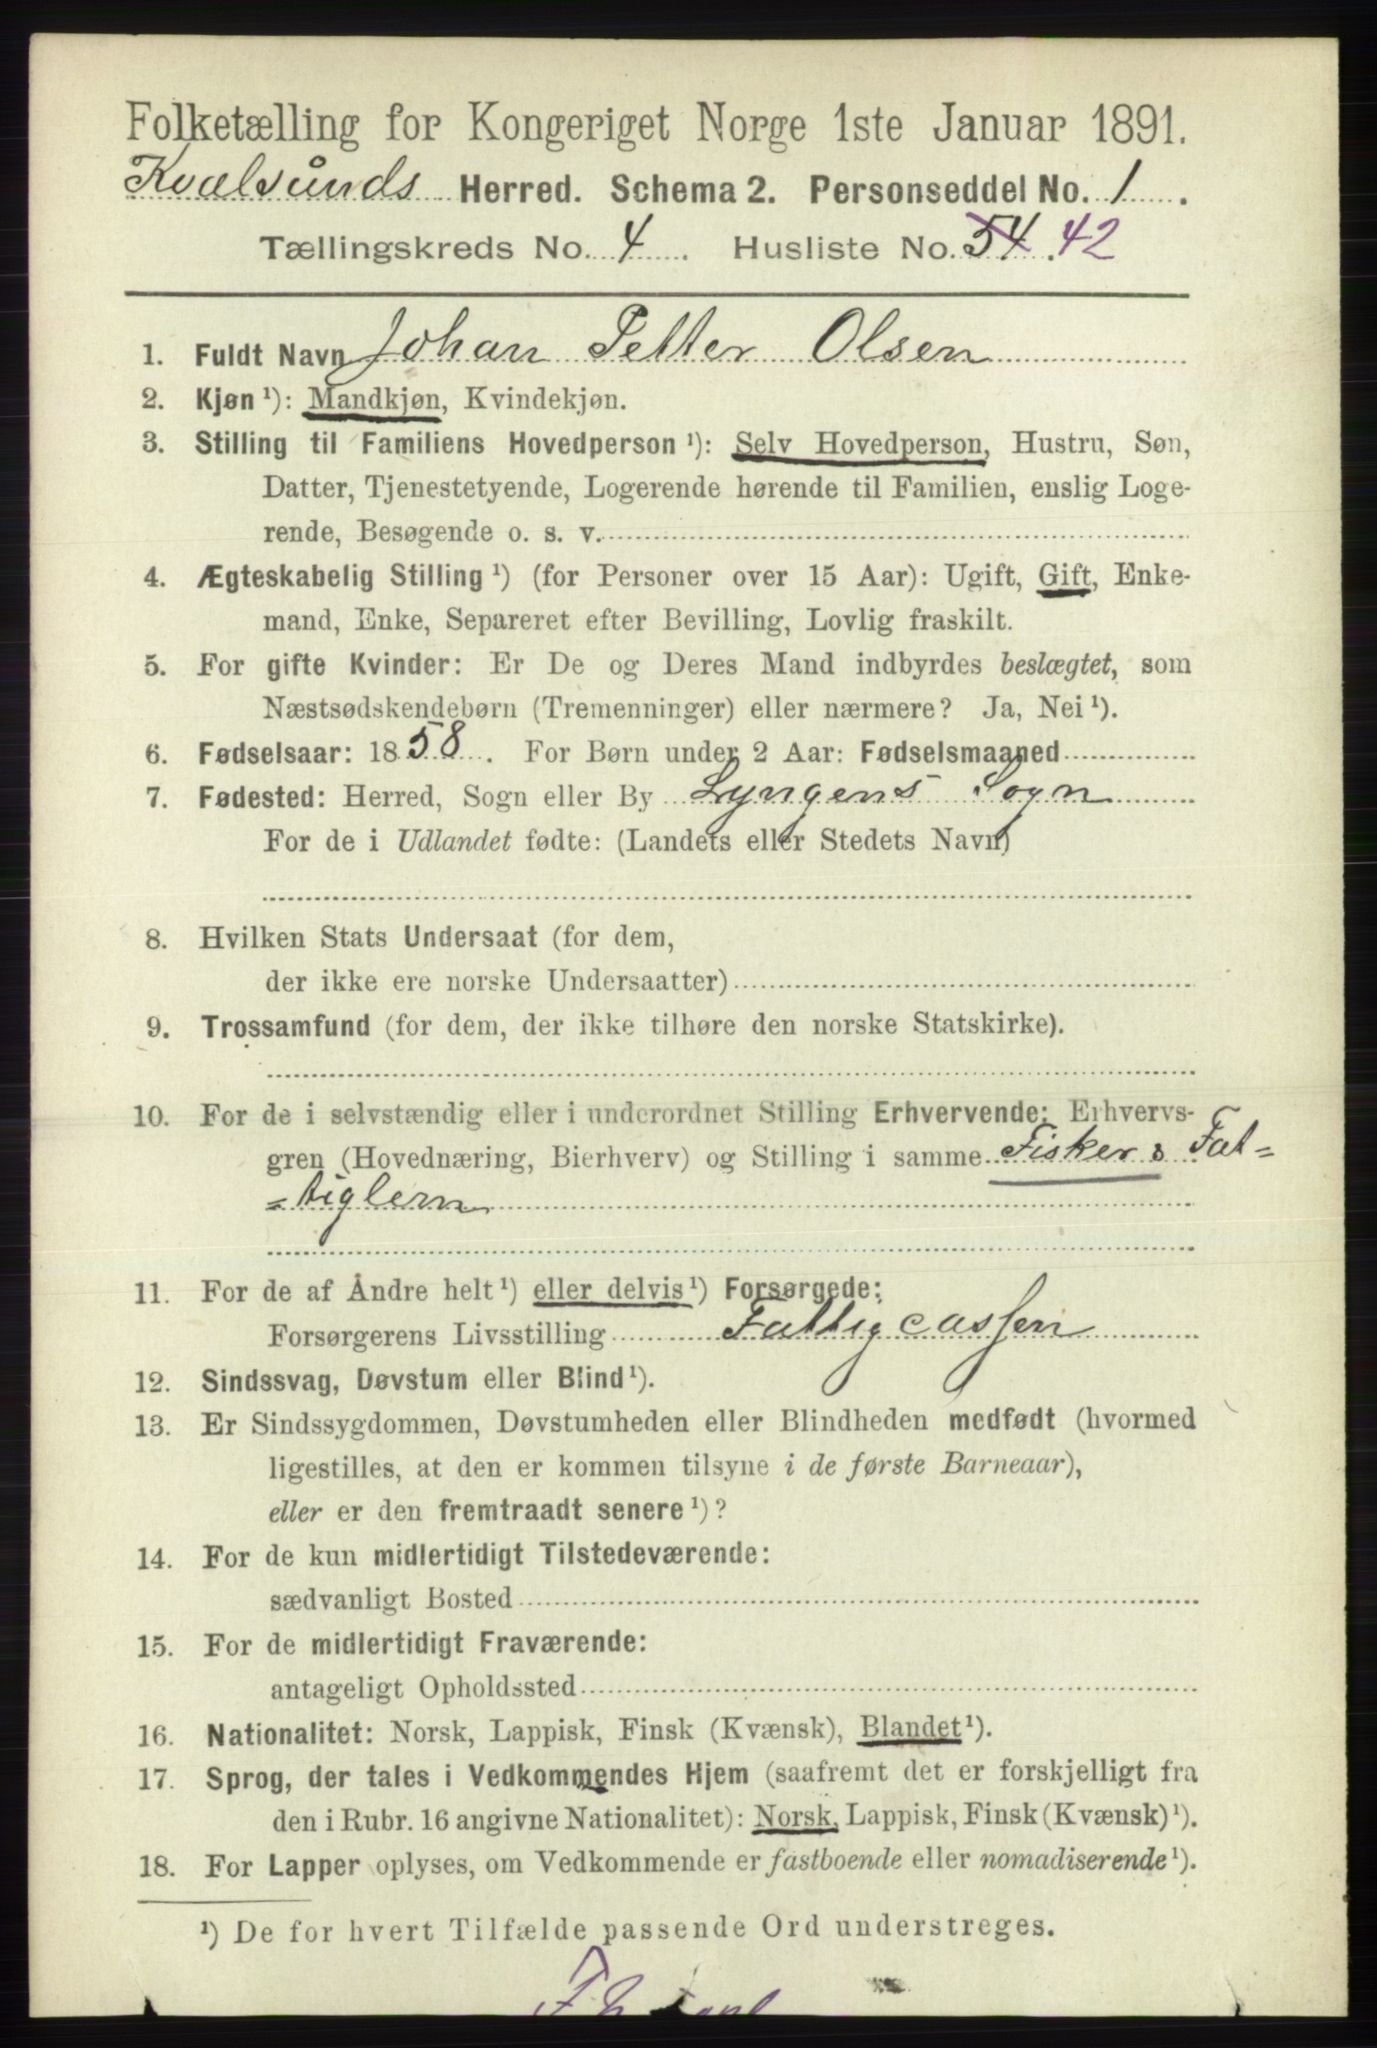 Folketælling for Kongeriget Norge 1ste Januar 1891.
Kvalsunds Herred. Schema 2. Personseddel No. 1.
Tællingskreds No. 4. Husliste No. 54. 42
1. Fuldt Navn Johan Petter Olsen
2. Kjøn¹): Mandkjøn, Kvindekjøn.
3. Stilling til Familiens Hovedperson¹): Selv Hovedperson, Hustru, Søn,
Datter, Tjenestetyende, Logerende hørende til Familien, enslig Loge-
rende, Besøgende o. s. v.
4. Ægteskabelig Stilling¹) (for Personer over 15 Aar): Ugift, Gift, Enke-
mand, Enke, Separeret efter Bevilling, Lovlig fraskilt.
5. For gifte Kvinder: Er De og Deres Mand indbyrdes beslægtet, som
Næstsødskendebørn (Tremenninger) eller nærmere? Ja, Nei¹).
6. Fødselsaar: 1858. For Børn under 2 Aar: Fødselsmaaned
7. Fødested: Herred, Sogn eller By Lyngens Sogn
For de i Udlandet fødte: (Landets eller Stedets Navn)
8. Hvilken Stats Undersaat (for dem,
der ikke ere norske Undersaatter)
9. Trossamfund (for dem, der ikke tilhøre den norske Statskirke).
10. For de i selvstændig eller i underordnet Stilling Erhvervende: Erhvervs-
gren (Hovednæring, Bierhverv) og Stilling i samme Fisker & Fat=
=tiglem
11. For de af Andre helt¹) eller delvis¹) Forsørgede:
Forsørgerens Livsstilling Fattigcassen
12. Sindssvag, Døvstum eller Blind¹).
13. Er Sindssygdommen, Døvstumheden eller Blindheden medfødt (hvormed
ligestilles, at den er kommen tilsyne i de første Barneaar),
eller er den fremtraadt senere¹)?
14. For de kun midlertidigt Tilstedeværende:
sædvanligt Bosted
15. For de midlertidigt Fraværende:
antageligt Opholdssted
16. Nationalitet: Norsk, Lappisk, Finsk (Kvænsk), Blandet¹).
17. Sprog, der tales i Vedkommendes Hjem (saafremt det er forskjelligt fra
den i Rubr. 16 angivne Nationalitet): Norsk, Lappisk, Finsk (Kvænsk)¹).
18. For Lapper oplyses, om Vedkommende er fastboende eller nomadiserende¹).
¹) De for hvert Tilfælde passende Ord understreges.